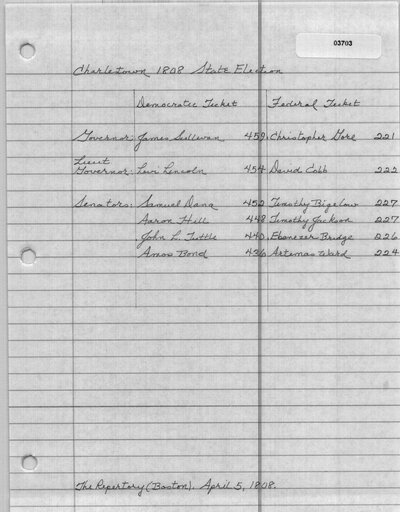 03703
Charlestown 1808 State Election
Democratic Ticket Federal Ticket
Governor: James Sullivan 459. Christopher Gore 221
Lieut
Governor: Levi Lincoln 454 David Cobb 222
Senators: Samuel Dana 452 Timothy Bigelow 227
Aaron Hill 448 Timothy Jackson 227
John L. Tuttle 440. Ebenezer Bridge 226
Amos Bond 436 Artemas Ward 224
The Repertory (Boston). April 5, 1808.